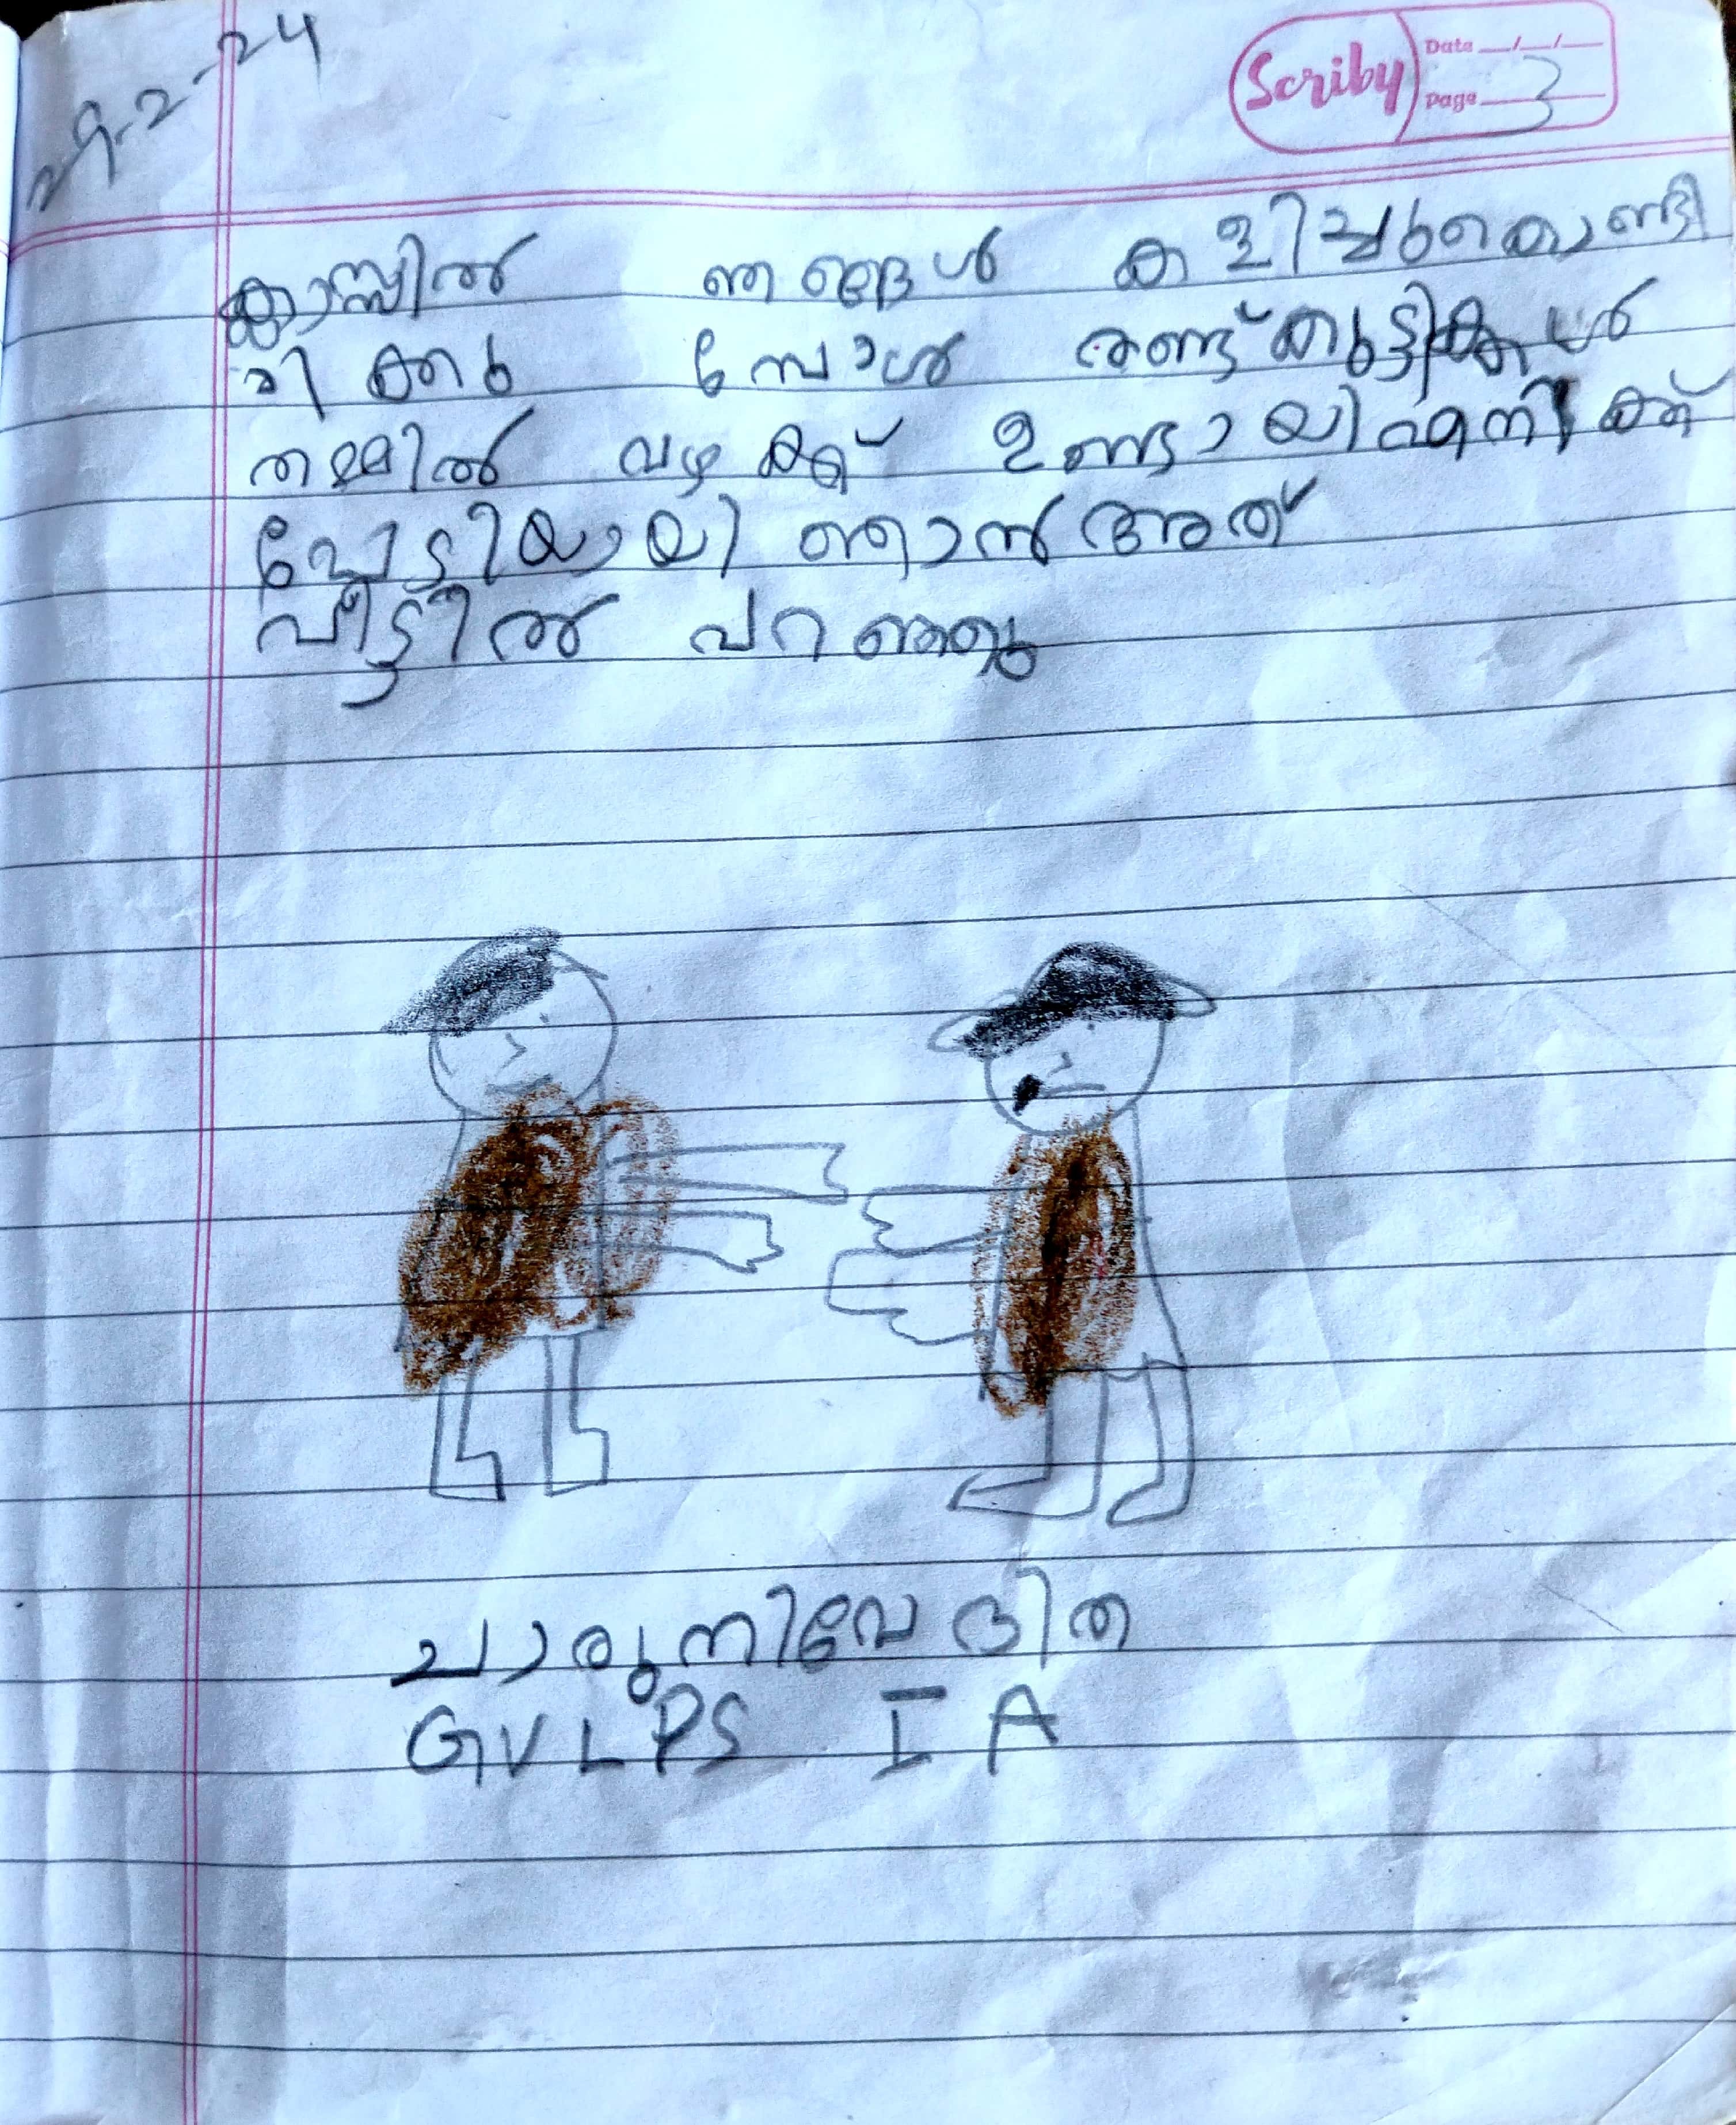 29-2-24
Scriby
Date __/__/__
Page 3
ക്ലാസ്സിൽ ഞങ്ങൾ കളിച്ചുകൊണ്ടി
രിക്കു മ്പോൾ രണ്ട് കുട്ടികൾ
തമ്മിൽ വഴക്ക് ഉണ്ടായി എനിക്ക്
പേടിയായി ഞാൻ അത്
വീട്ടിൽ പറഞ്ഞു
ചാരുനിവേദിത
GVLPS I A